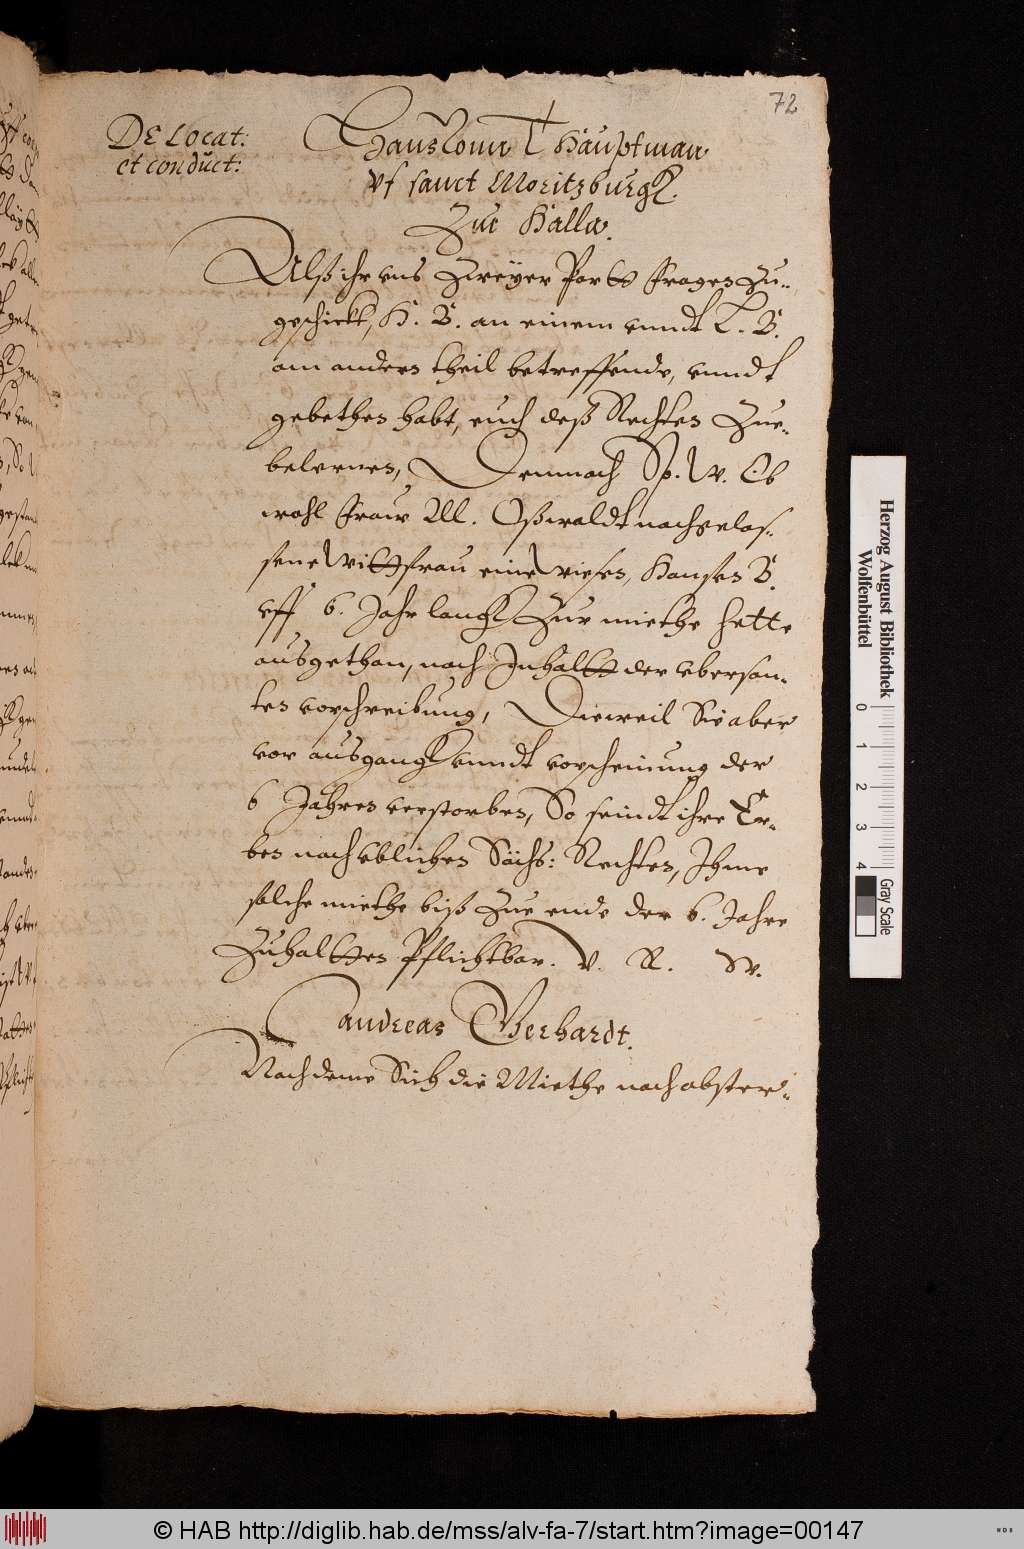 72
DE Locat:
et conduct:
Hans vom T Häuptman
Vf sanct Moritzburgk.
Zue Halla.
Alß ihr vns Zweÿer Part Fragen Zu-
geschickt, H. B. an einem vnndt L. B.
am andern theil betreffende, vnndt
gebethen habt, euch deß Rechten Zue-
belernen, Demnach Sp. W. Ob
wohl Fraw M. Oßwaldt nachgelas-
sene Wittfrau eine Wiesen, Hansen B.
vff 6. Jahr langk Zur miethe hette
ausgethan, nach Inhalt der vbersan-
ten vorschreibung, Dieweil Sie aber
vor ausgangk vnndt vorscheinung der
6 Jahren verstorben, So seindt ihre Er-
ben nach vblichen Sächs: Rechten, Ihme
solche miethe biß Zue ende der 6. Jahre
Zuhalten Pflichtbar. V. R. W.
Andreas Gerhardt.
Nachdeme Sich die Miethe nach abster-
Herzog August Bibliothek
Wolfenbüttel
0 1 2 3 4
Gray Scale
© HAB http://diglib.hab.de/mss/alv-fa-7/start.htm?image=00147